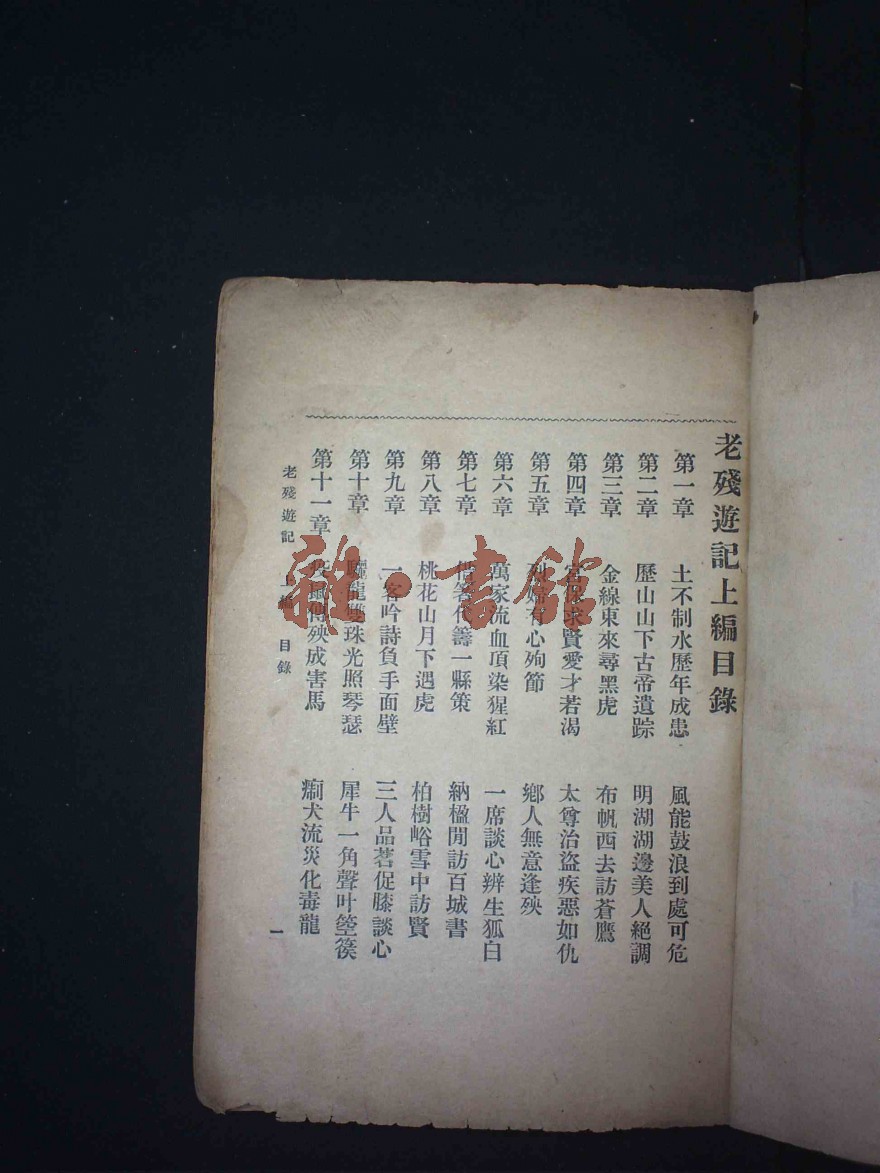 老殘遊記上編目錄
第一章 土不制水歷年成患 風能鼓浪到處可危
第二章 歷山山下古帝遺踪 明湖湖邊美人絕調
第三章 金線東來尋黑虎 布帆西去訪蒼鷹
第四章 宮保求賢愛才若渴 太尊治盜疾惡如仇
第五章 烈婦有心殉節 鄉人無意逢殃
第六章 萬家流血頂染猩紅 一席談心辨生狐白
第七章 借箸代籌一縣策 納楹閒訪百城書
第八章 桃花山月下遇虎 柏樹峪雪中訪賢
第九章 一客吟詩負手面壁 三人品茗促膝談心
第十章 驪龍雙珠光照琴瑟 犀牛一角聲叶箜篌
第十一章 疫鼠傳殃成害馬 瘈犬流災化毒龍
老殘遊記 上編 目錄 一
雜·書館